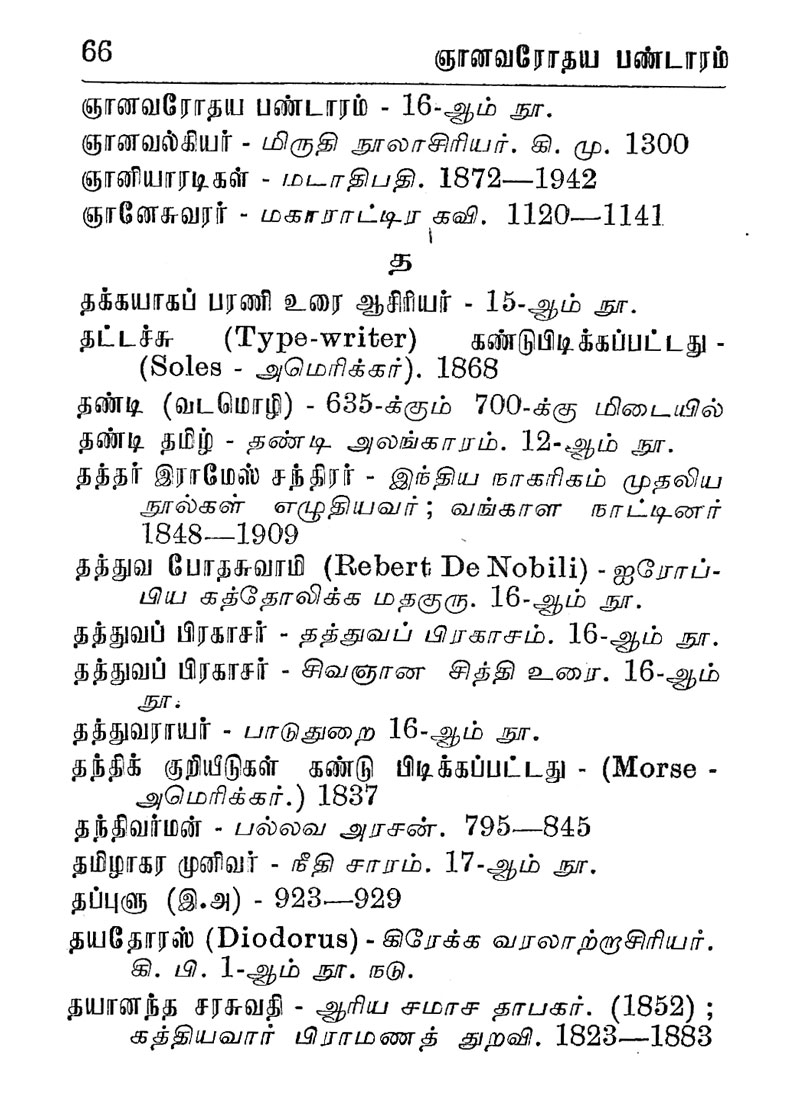 66 ஞானவரோதய பண்டாரம்
ஞானவரோதய பண்டாரம் - 16-ஆம் நூ.
ஞானவல்கியர் - மிருதி நூலாசிரியர். கி. மு. 1300
ஞானியாரடிகள் - மடாதிபதி. 1872—1942
ஞானேசுவரர் - மகாராட்டிர கவி. 1120—1141
த
தக்கயாகப் பரணி உரை ஆசிரியர் - 15-ஆம் நூ.
தட்டச்சு (Type-writer) கண்டுபிடிக்கப்பட்டது -
(Soles - அமெரிக்கர்). 1868
தண்டி (வடமொழி) - 635-க்கும் 700-க்கு மிடையில்
தண்டி தமிழ் - தண்டி அலங்காரம். 12-ஆம் நூ.
தத்தர் இராமேஸ் சந்திரர் - இந்திய நாகரிகம் முதலிய
நூல்கள் எழுதியவர் ; வங்காள நாட்டினர்
1848—1909
தத்துவ போதசுவாமி (Rebert De Nobili) - ஐரோப்-
பிய கத்தோலிக்க மதகுரு. 16-ஆம் நூ.
தத்துவப் பிரகாசர் - தத்துவப் பிரகாசம். 16-ஆம் நூ.
தத்துவப் பிரகாசர் - சிவஞான சித்தி உரை. 16-ஆம்
நூ.
தத்துவராயர் - பாடுதுறை 16-ஆம் நூ.
தந்திக் குறியீடுகள் கண்டு பிடிக்கப்பட்டது - (Morse -
அமெரிக்கர்.) 1837
தந்திவர்மன் - பல்லவ அரசன். 795—845
தமிழாகர முனிவர் - நீதி சாரம். 17-ஆம் நூ.
தப்புளு (இ.அ) - 923—929
தயதோரஸ் (Diodorus) - கிரேக்க வரலாற்றாசிரியர்.
கி. பி. 1-ஆம் நூ. நடு.
தயானந்த சரசுவதி - ஆரிய சமாச தாபகர். (1852) ;
கத்தியவார் பிராமணத் துறவி. 1823—1883